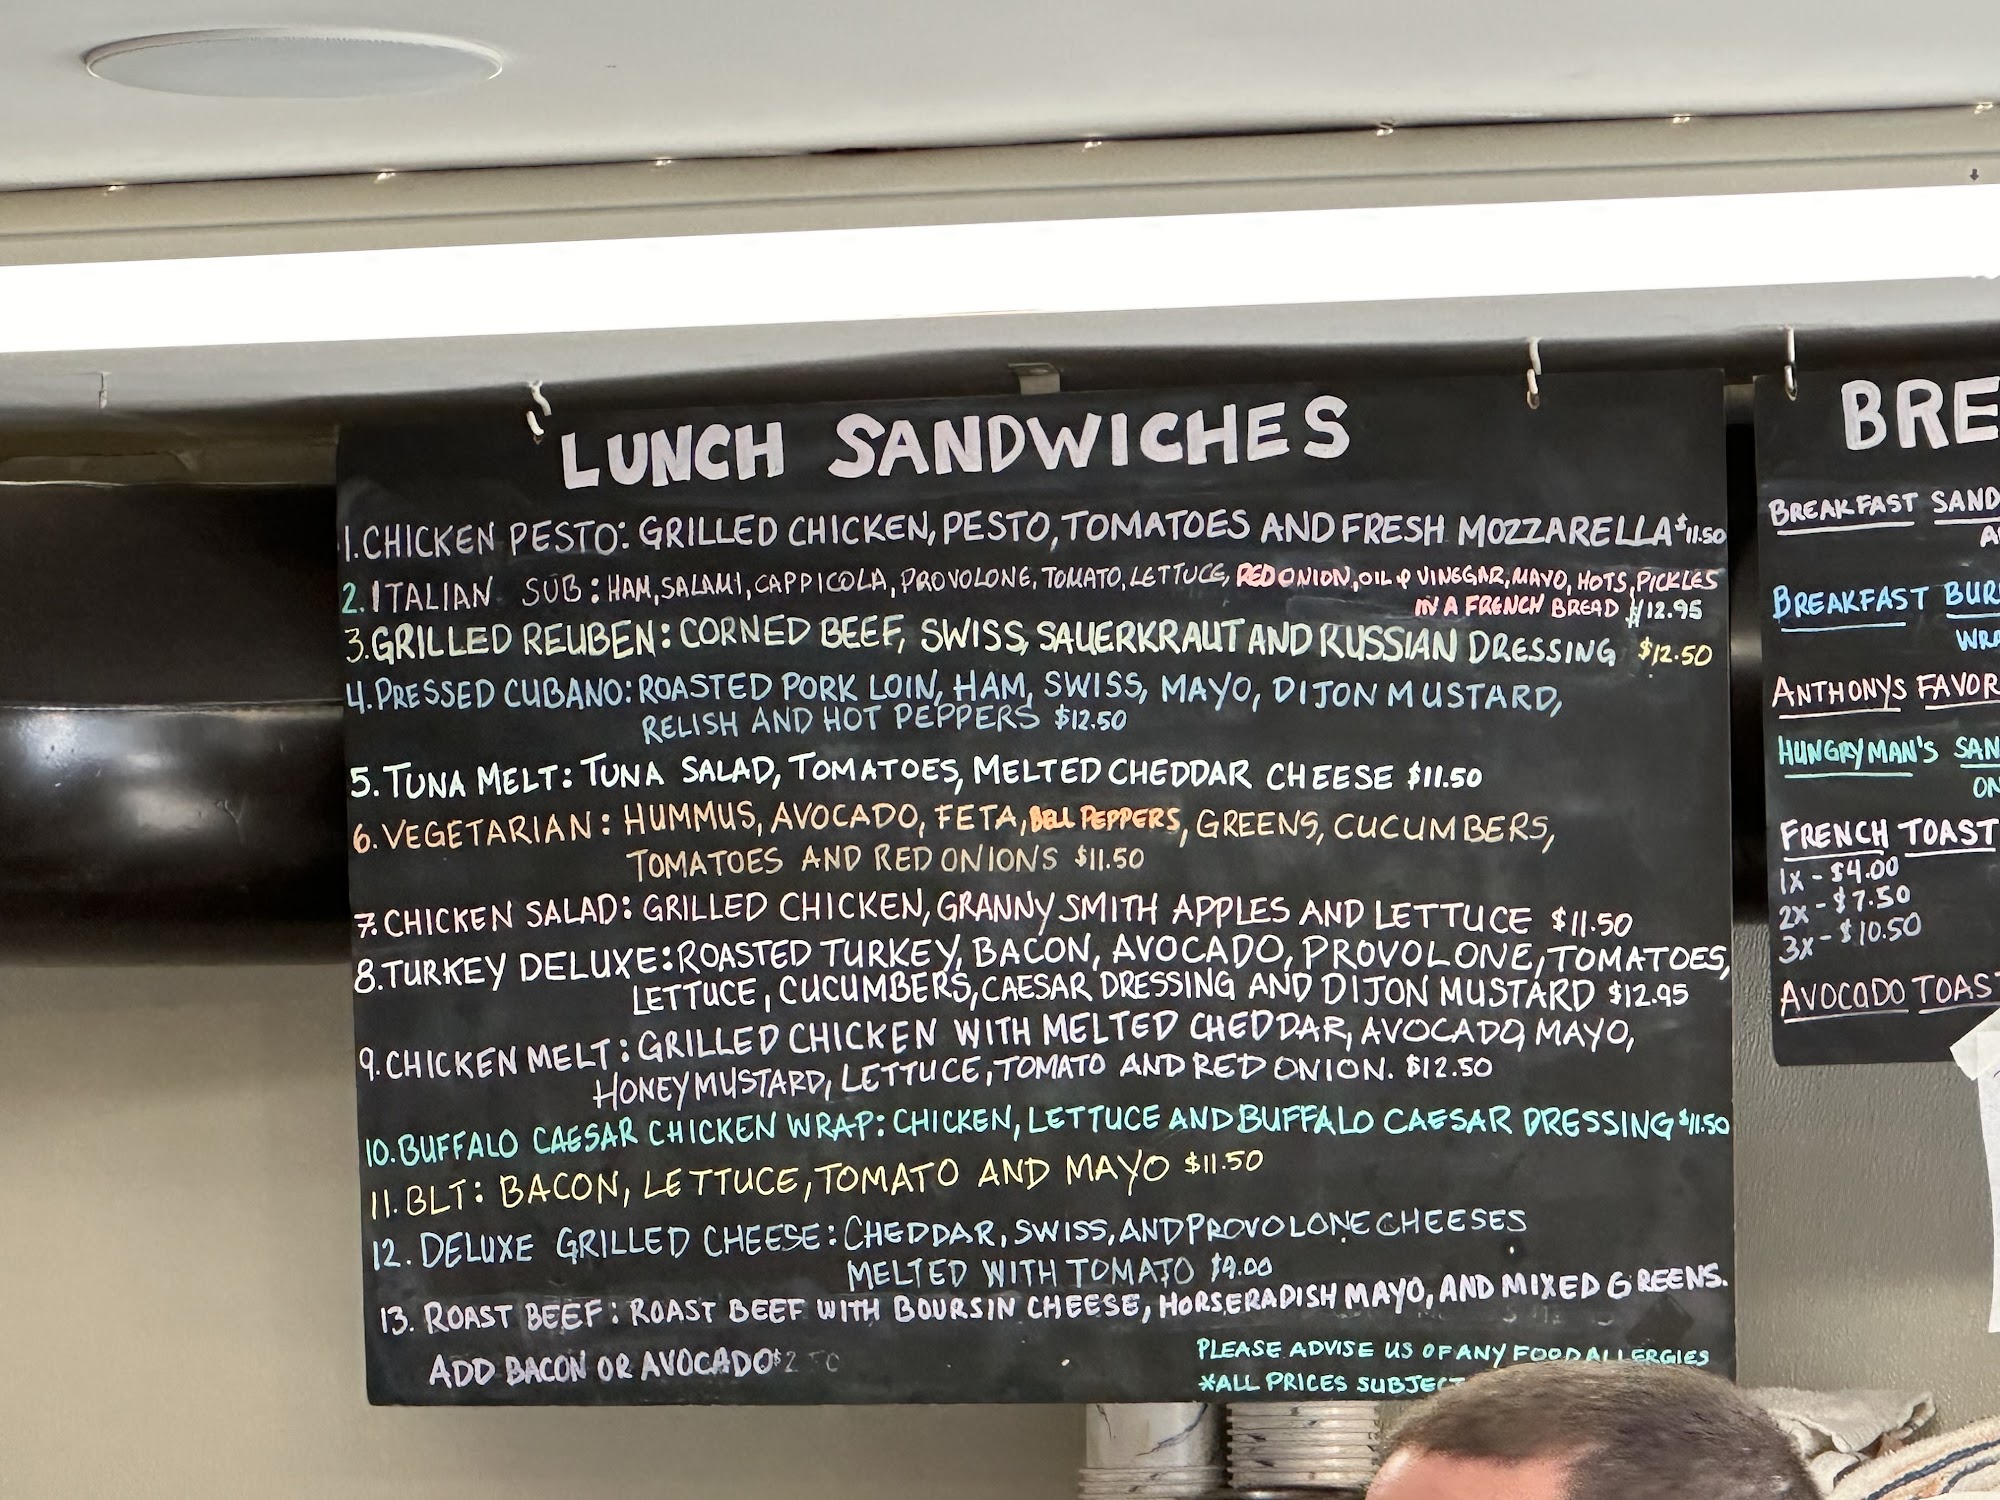 LUNCH SANDWICHES
1. CHICKEN PESTO: GRILLED CHICKEN, PESTO, TOMATOES AND FRESH MOZZARELLA $11.50
2. ITALIAN SUB: HAM, SALAMI, CAPPICOLA, PROVOLONE, TOMATO, LETTUCE, RED ONION, OIL & VINEGAR, MAYO, HOTS, PICKLES
IN A FRENCH BREAD $12.95
3. GRILLED REUBEN: CORNED BEEF, SWISS, SAUERKRAUT AND RUSSIAN DRESSING $12.50
4. PRESSED CUBANO: ROASTED PORK LOIN, HAM, SWISS, MAYO, DIJON MUSTARD,
RELISH AND HOT PEPPERS $12.50
5. TUNA MELT: TUNA SALAD, TOMATOES, MELTED CHEDDAR CHEESE $11.50
6. VEGETARIAN: HUMMUS, AVOCADO, FETA, BELL PEPPERS, GREENS, CUCUMBERS,
TOMATOES AND RED ONIONS $11.50
7. CHICKEN SALAD: GRILLED CHICKEN, GRANNY SMITH APPLES AND LETTUCE $11.50
8. TURKEY DELUXE: ROASTED TURKEY, BACON, AVOCADO, PROVOLONE, TOMATOES,
LETTUCE, CUCUMBERS, CAESAR DRESSING AND DIJON MUSTARD $12.95
9. CHICKEN MELT: GRILLED CHICKEN WITH MELTED CHEDDAR, AVOCADO, MAYO,
HONEY MUSTARD, LETTUCE, TOMATO AND RED ONION. $12.50
10. BUFFALO CAESAR CHICKEN WRAP: CHICKEN, LETTUCE AND BUFFALO CAESAR DRESSING $11.50
11. BLT: BACON, LETTUCE, TOMATO AND MAYO $11.50
12. DELUXE GRILLED CHEESE: CHEDDAR, SWISS, AND PROVOLONE CHEESES
MELTED WITH TOMATO $9.00
13. ROAST BEEF: ROAST BEEF WITH BOURSIN CHEESE, HORSERADISH MAYO, AND MIXED GREENS.
ADD BACON OR AVOCADO $2.50
PLEASE ADVISE US OF ANY FOOD ALLERGIES
*ALL PRICES SUBJECT
BRE
BREAKFAST SAND
BREAKFAST BUR
WRA
ANTHONYS FAVOR
HUNGRYMAN'S SAN
ON
FRENCH TOAST
1X - $4.00
2X - $7.50
3X - $10.50
AVOCADO TOAST